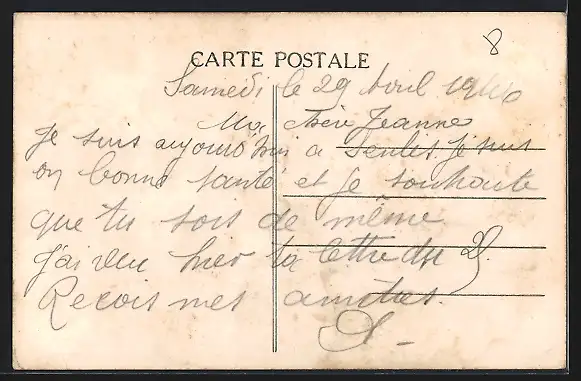 8
CARTE POSTALE
Samedi le 29 Avril 1916
Ma Chère Jeanne
Je suis aujourd'hui a Senlis je suis
en bonne santé et je souhaite
que tu sois de même
J'ai reçu hier ta lettre du 25.
Reçois mes amitiés.